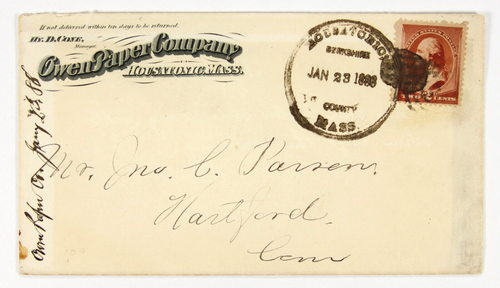 If not delivered within ten days to be returned.
Hy. D. Cone,
Manager
Owen Paper Company
Housatonic, Mass.
HOUSATONIC
BERKSHIRE
JAN 23 1888
COUNTY
MASS.
CENTS
Mr. Jno. C. Parson,
Hartford.
Conn
Owen Paper Co. Jany